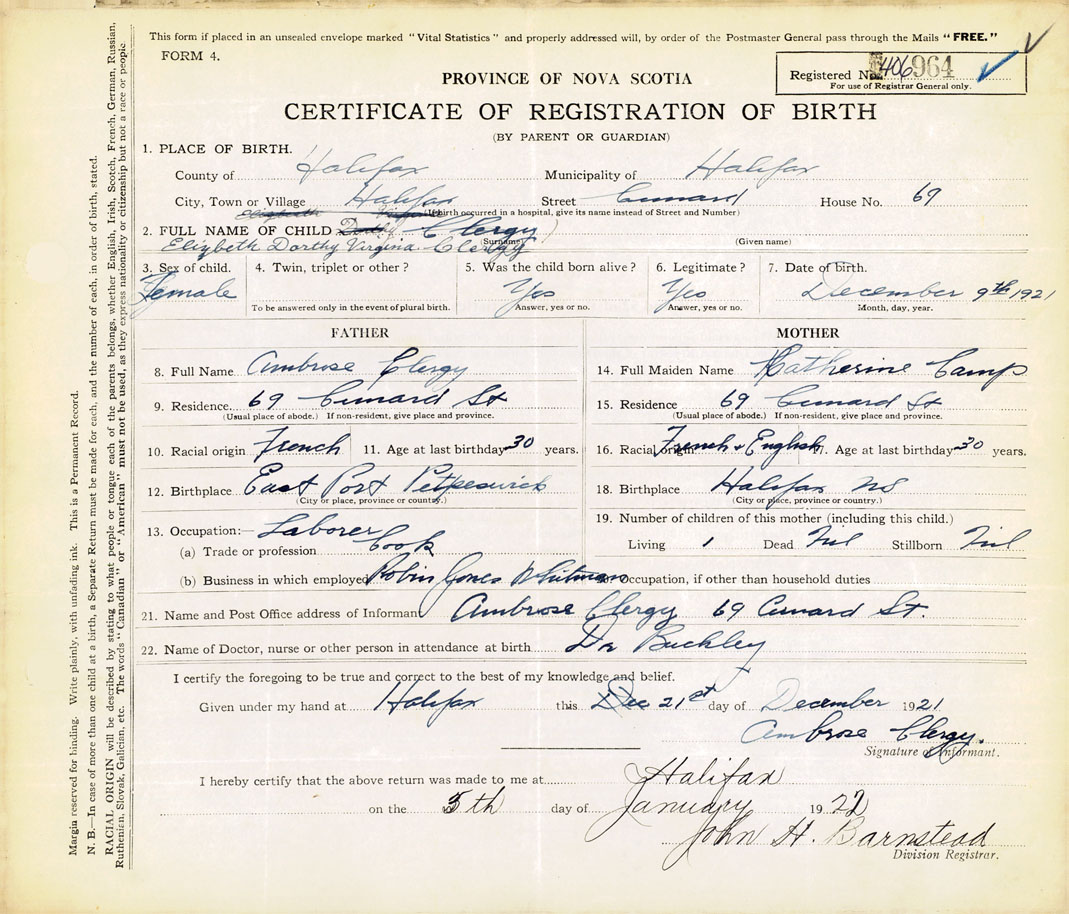 This form if placed in an unsealed envelope marked "Vital Statistics" and properly addressed will, by order of the Postmaster General pass through the Mails "FREE."
FORM 4.
Registered No. 406964
For use of Registrar General only.
PROVINCE OF NOVA SCOTIA
CERTIFICATE OF REGISTRATION OF BIRTH
(BY PARENT OR GUARDIAN)
1. PLACE OF BIRTH.
County of Halifax Municipality of Halifax
City, Town or Village Halifax Street Cunard House No. 69
(If birth occurred in a hospital, give its name instead of Street and Number)
2. FULL NAME OF CHILD Clergy
(Surname) (Given name)
Elizbeth Dorthy Virginia Clergy
3. Sex of child. 4. Twin, triplet or other? 5. Was the child born alive? 6. Legitimate? 7. Date of birth.
Female Yes Yes December 9th 1921
To be answered only in the event of plural birth. Answer, yes or no. Answer, yes or no. Month, day, year.
FATHER MOTHER
8. Full Name Ambrose Clergy 14. Full Maiden Name Katherine Camp
9. Residence 69 Cunard St 15. Residence 69 Cunard St
(Usual place of abode.) If non-resident, give place and province. (Usual place of abode.) If non-resident, give place and province.
10. Racial origin French 11. Age at last birthday 30 years. 16. Racial origin French & English 17. Age at last birthday 30 years.
12. Birthplace East Port Petpeswick 18. Birthplace Halifax NS
(City or place, province or country.) (City or place, province or country.)
13. Occupation:— Laborer 19. Number of children of this mother (including this child.)
(a) Trade or profession Cook Living 1 Dead Nil Stillborn Nil
(b) Business in which employed Robin Jones Whitman 20. Occupation, if other than household duties
21. Name and Post Office address of Informant Ambrose Clergy 69 Cunard St.
22. Name of Doctor, nurse or other person in attendance at birth Dr Buckley
I certify the foregoing to be true and correct to the best of my knowledge and belief.
Given under my hand at Halifax this Dec 21st day of December 1921
Ambrose Clergy.
Signature of Informant.
I hereby certify that the above return was made to me at Halifax
on the 5th day of January 1922
John H. Barnstead
Division Registrar.
Margin reserved for binding. Write plainly, with unfading ink. This is a Permanent Record.
N. B.—In case of more than one child at a birth, a Separate Return must be made for each, and the number of each, in order of birth, stated.
RACIAL ORIGIN will be described by stating to what people or tongue each of the parents belongs, whether English, Irish, Scotch, French, German, Russian,
Ruthenian, Slovak, Galician, etc. The words "Canadian" or "American" must not be used, as they express nationality or citizenship but not a race or people